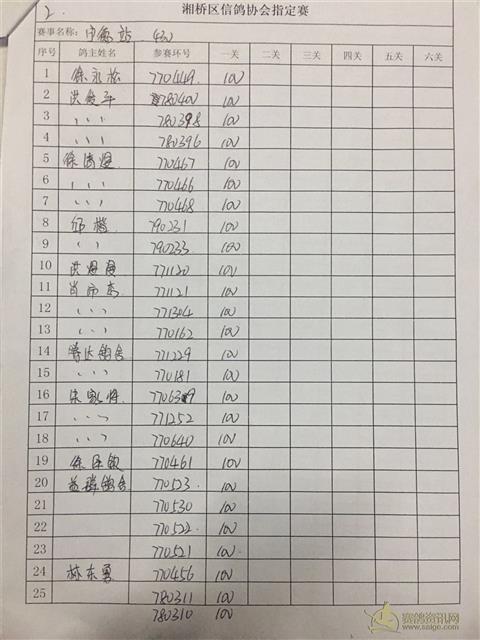 2.
湘桥区信鸽协会指定赛
赛事名称: 站 400
序号 鸽主姓名 参赛环号 一关 二关 三关 四关 五关 六关
1 徐永松 770449. 100
2 洪俊平 780400 100
3 、、、 780398 100
4 、、、 780396 100
5 770467 100
6 、、、 770466 100
7 、、、 770468 100
8 邱 790231 100
9 、、 790233 100
10 771120 100
11 肖 771121 100
12 、、、 771304 100
13 、、、 770162 100
14 腾达鸽舍 771229 100
15 、、、 770181 100
16 770639 100
17 、、、 771252 100
18 、、、 770640 100
19 770461 100
20 益群鸽舍 770523. 100
21 770530 100
22 770522. 100
23 770521 100
24 林东勇 770456 100
25 780311 100
780310 100
赛鸽资讯网
www.saige.com